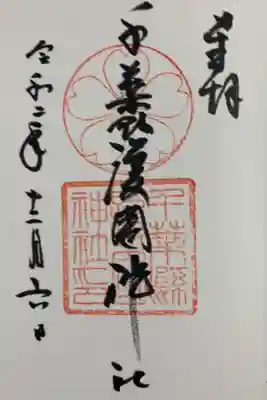 奉拝
千葉縣護國神社
千葉縣護國神社印
令和二年十二月六日